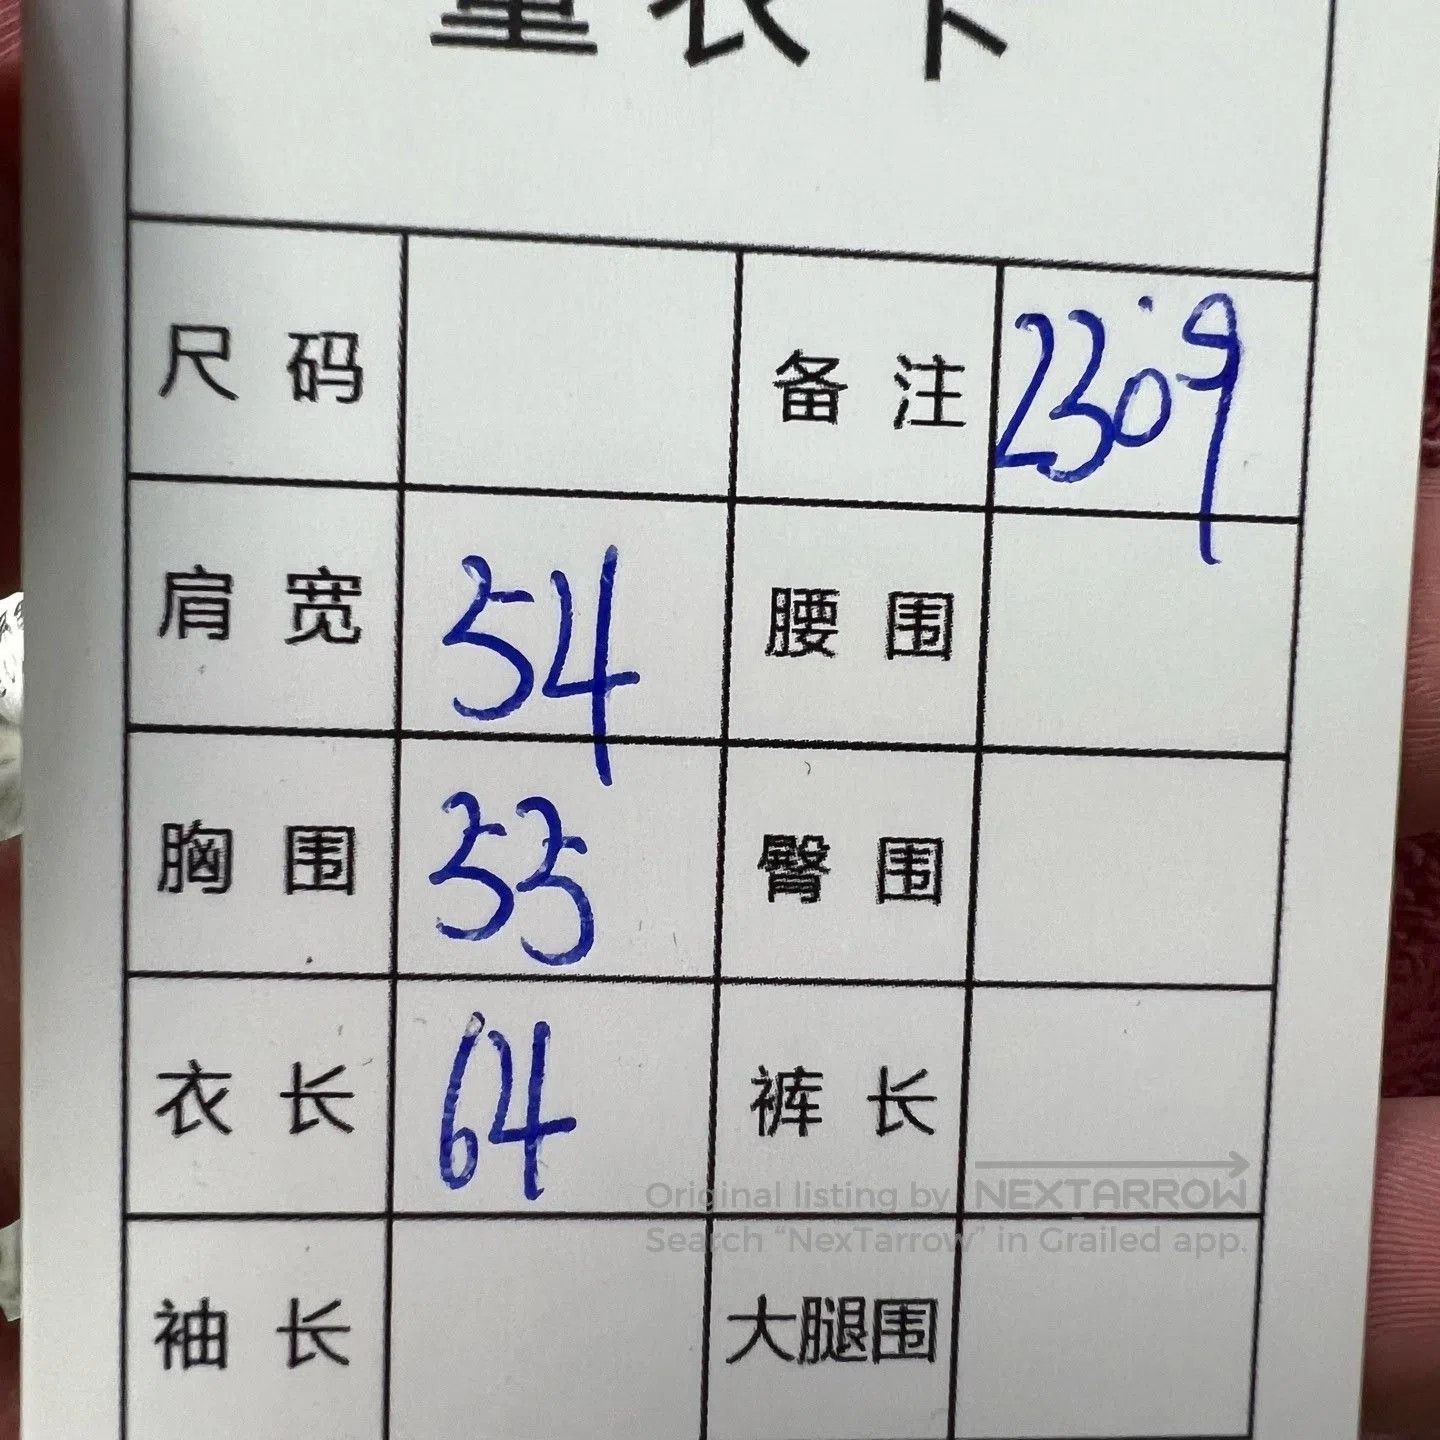 量衣卡
尺码 备注 2309
肩宽 54 腰围
胸围 55 臀围
衣长 64 裤长
Original listing by NEXTARROW
Search “NexTarrow” in Grailed app.
袖长 大腿围